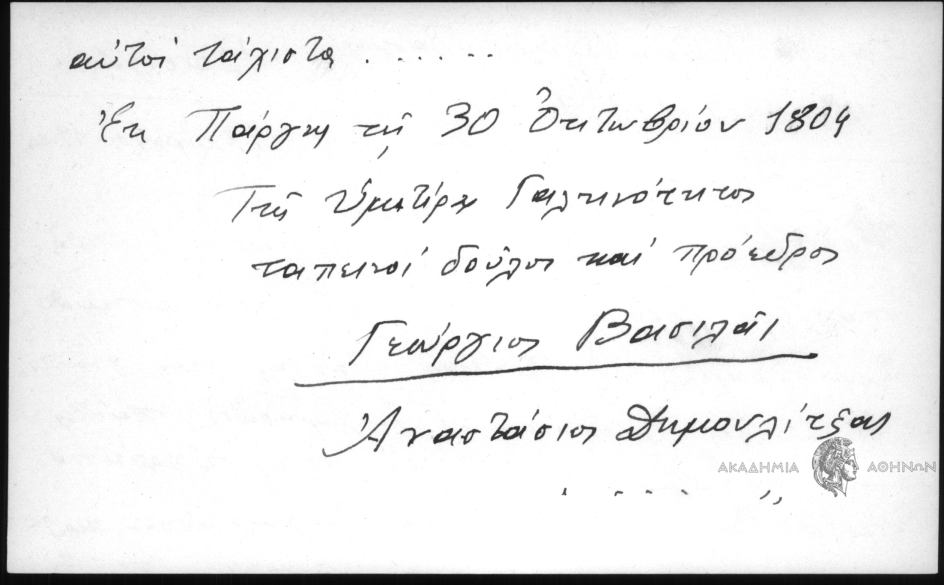 αὐτοὶ τάχιστα . . . . . .
Ἐκ Πάργης τῇ 30 Ὀκτωβρίου 1804
Τῆς Ὑμετέρης Γαληνότητος
ταπεινοὶ δοῦλοι καὶ πρόεδροι
Γεώργιος Βασιλᾶς
Ἀναστάσιος Δημουλίτξας
ΑΚΑΔΗΜΙΑ ΑΘΗΝΩΝ
. - - - "